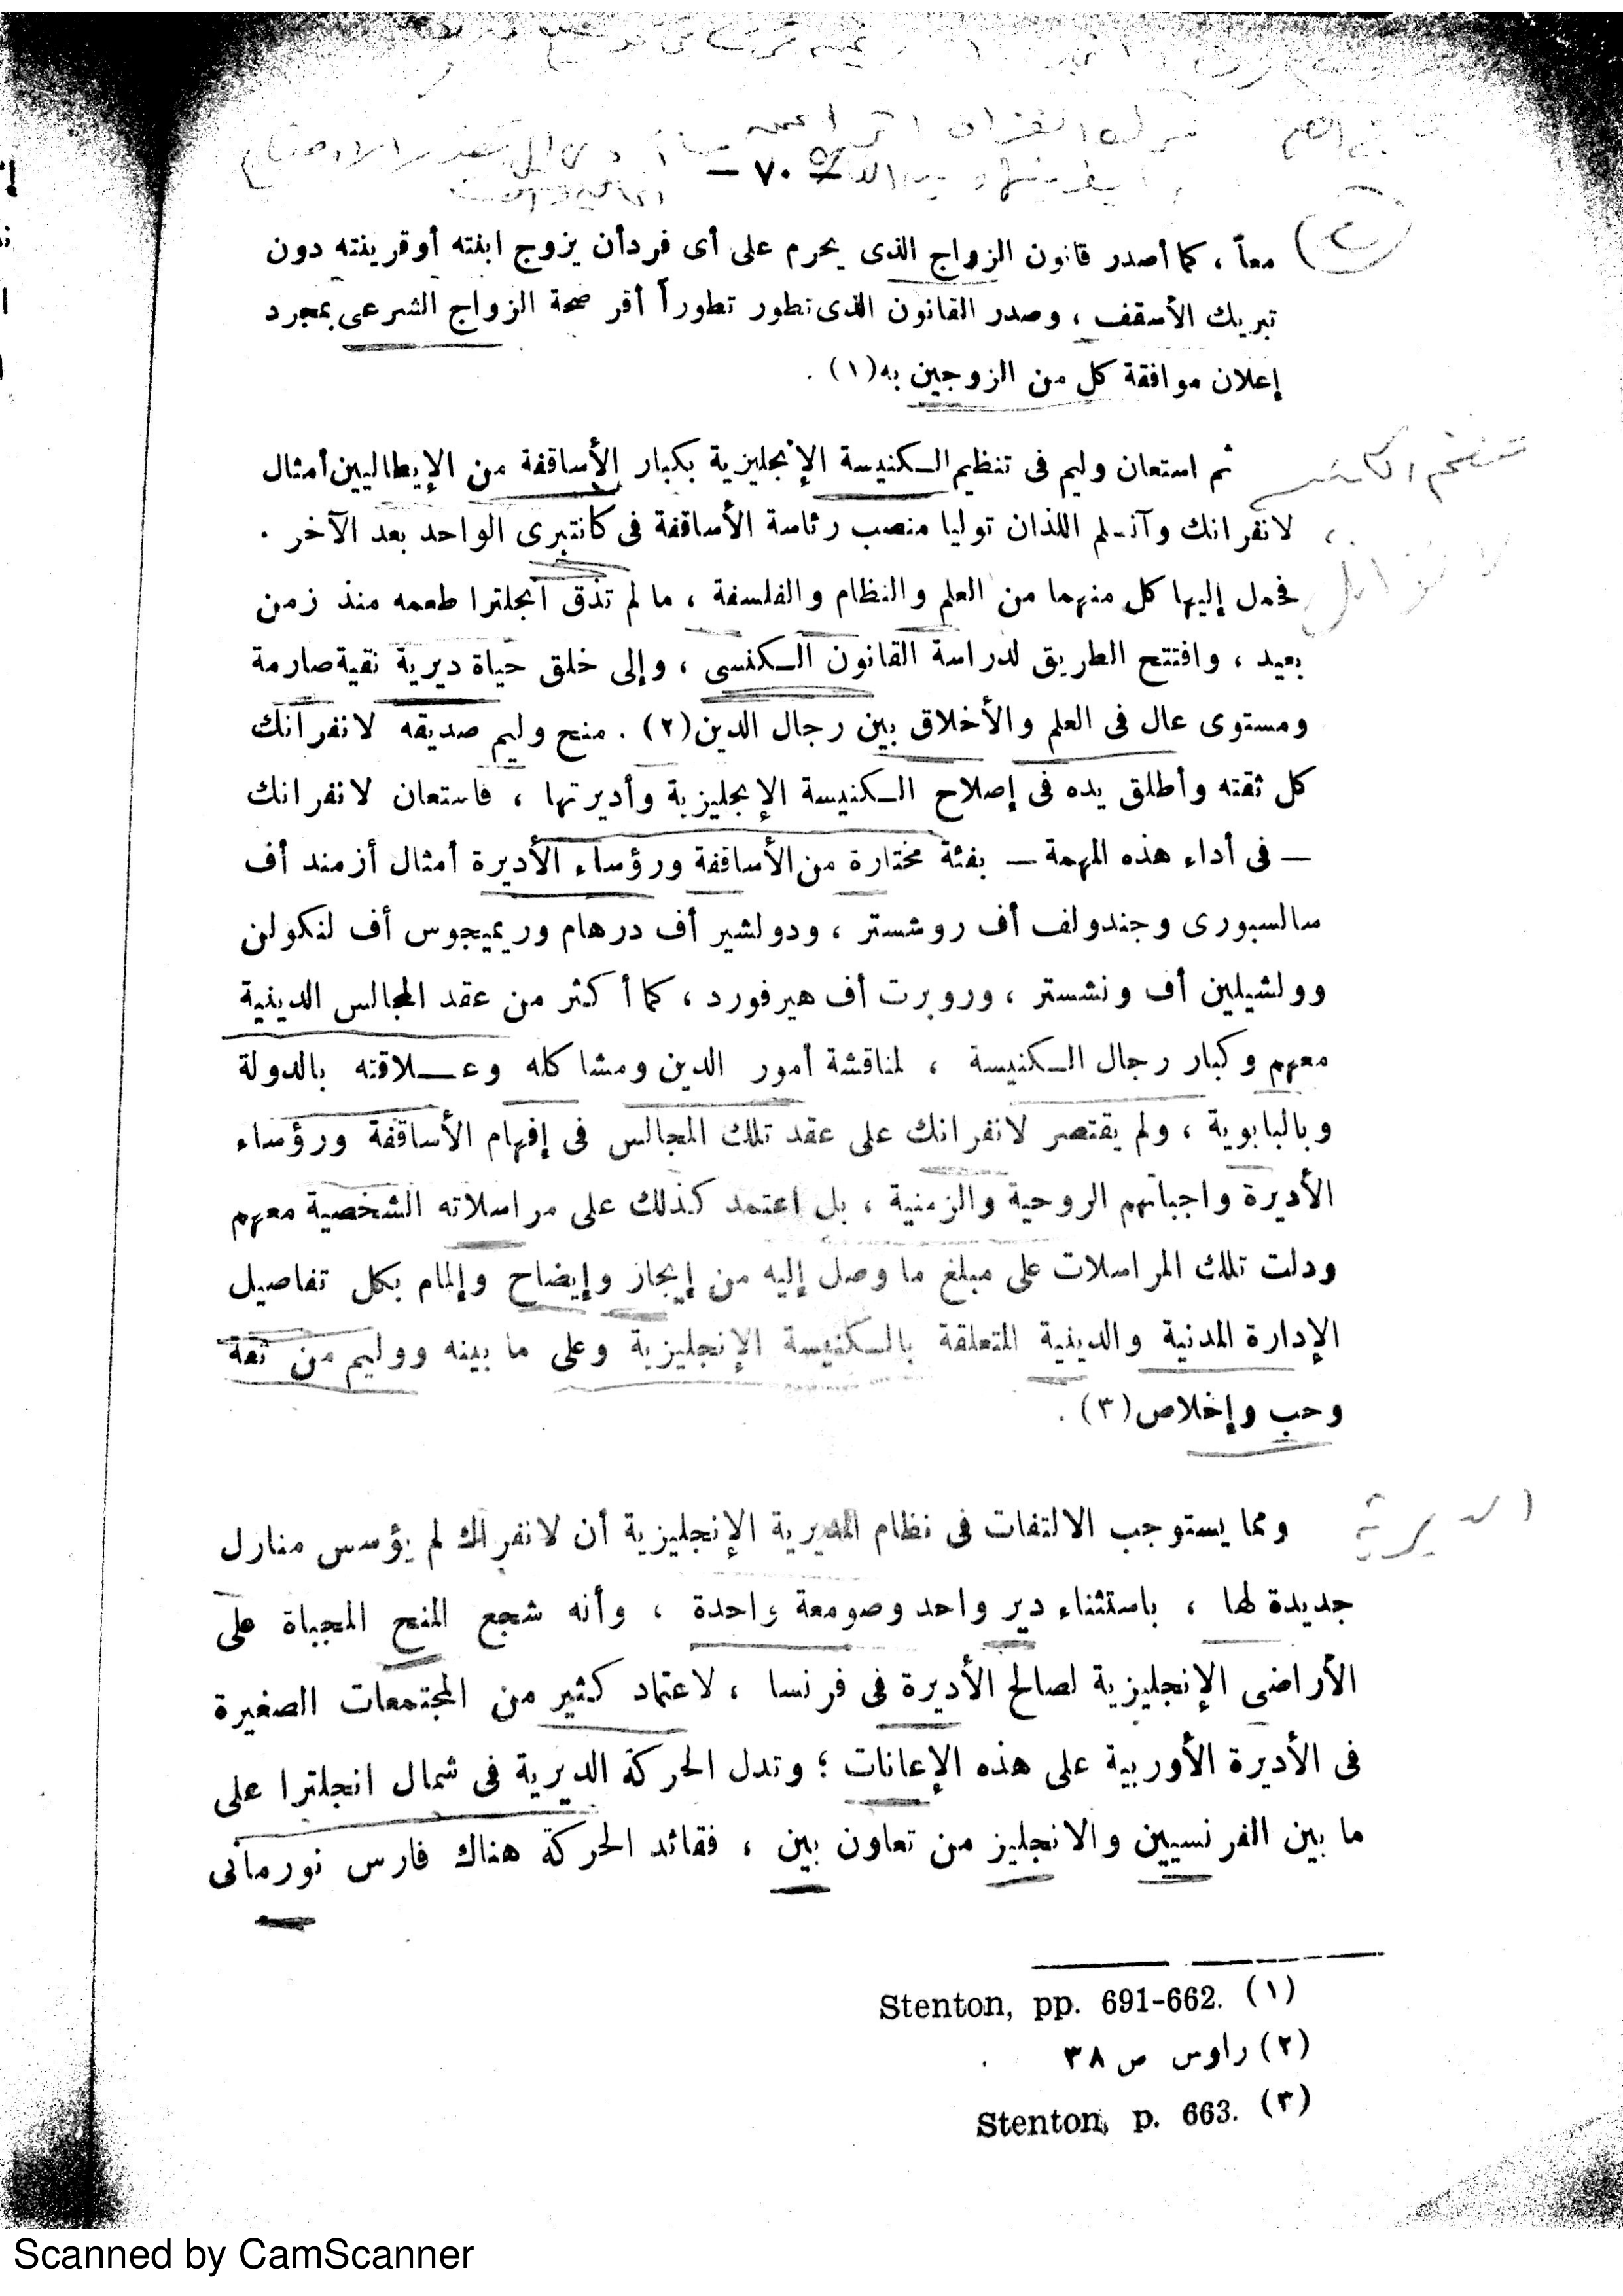 — ٧٠ —
معاً ، كما أصدر قانون الزواج الذى يحرم على أى فرد أن يزوج ابنته أو قرينته دون
تبريك الأسقف ، وصدر القانون الذى تطور تطوراً أقر صحة الزواج الشرعى بمجرد
إعلان موافقة كل من الزوجين به (١) .
ثم استعان وليم فى تنظيم الكنيسة الإنجليزية بكبار الأساقفة من الإيطاليين أمثال
لانفرانك وآنسلم اللذان توليا منصب رئاسة الأساقفة فى كانتبرى الواحد بعد الآخر .
فحمل إليها كل منهما من العلم والنظام والفلسفة ، ما لم تذق انجلترا طعمه منذ زمن
بعيد ، وافتتح الطريق لدراسة القانون الكنسى ، وإلى خلق حياة ديرية نقية صارمة
ومستوى عال فى العلم والأخلاق بين رجال الدين (٢) . منح وليم صديقه لانفرانك
كل ثقته وأطلق يده فى إصلاح الكنيسة الإنجليزية وأديرتها ، فاستعان لانفرانك
— فى أداء هذه المهمة — بفئة مختارة من الأساقفة ورؤساء الأديرة أمثال أزمند أف
سالسبورى وجندولف أف روشستر ، ودولشير أف درهام وريميجوس أف لنكولن
وولشيلين أف ونشستر ، وروبرت أف هيرفورد ، كما أكثر من عقد المجالس الدينية
معهم وكبار رجال الكنيسة ، لمناقشة أمور الدين ومشاكله وعلاقته بالدولة
وبالبابوية ، ولم يقتصر لانفرانك على عقد تلك المجالس فى إفهام الأساقفة ورؤساء
الأديرة واجباتهم الروحية والزمنية ، بل اعتمد كذلك على مراسلاته الشخصية معهم
ودلت تلك المراسلات على مبلغ ما وصل إليه من إيجاز وإيضاح وإلمام بكل تفاصيل
الإدارة المدنية والدينية المتعلقة بالكنيسة الإنجليزية وعلى ما بينه ووليم من ثقة
وحب وإخلاص (٣) .
الديرية
ومما يستوجب الالتفات فى نظام الديرية الإنجليزية أن لانفرانك لم يؤسس منازل
جديدة لها ، باستثناء دير واحد وصومعة واحدة ، وأنه شجع المنح المجباة على
الأراضى الإنجليزية لصالح الأديرة فى فرنسا ، لاعتماد كثير من المجتمعات الصغيرة
فى الأديرة الأوربية على هذه الإعانات ؛ وتدل الحركة الديرية فى شمال انجلترا على
ما بين الفرنسيين والانجليز من تعاون بين ، فقائد الحركة هناك فارس نورمانى
(١) Stenton, pp. 691-662.
(٢) راوس ص ٣٨
(٣) Stenton, p. 663.
Scanned by CamScanner